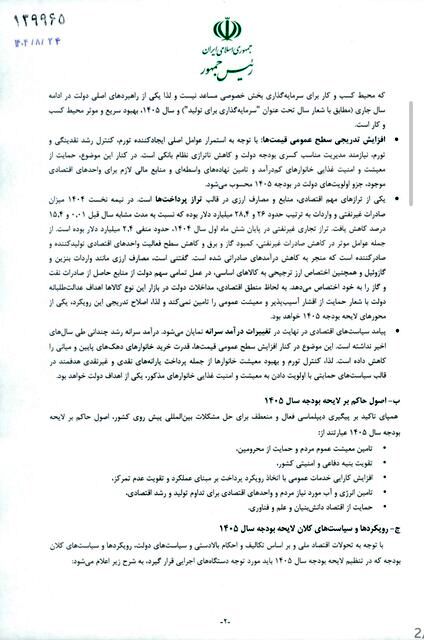 ۱۳۹۹۶۵
۱۴۰۴/۸/۲۴
جمهوری اسلامی ایران
رئیس جمهور
که محیط کسب و کار برای سرمایه‌گذاری بخش خصوصی مساعد نیست و لذا یکی از راهبردهای اصلی دولت در ادامه
سال جاری (مطابق با شعار سال تحت عنوان "سرمایه‌گذاری برای تولید") و سال ۱۴۰۵، بهبود سریع و موثر محیط کسب
و کار است.
• افزایش تدریجی سطح عمومی قیمت‌ها: با توجه به استمرار عوامل اصلی ایجادکننده تورم، کنترل رشد نقدینگی و
تورم، نیازمند مدیریت مناسب کسری بودجه دولت و کاهش ناترازی نظام بانکی است. در کنار این موضوع، حمایت از
معیشت و امنیت غذایی خانوارهای کم‌درآمد و تامین نهاده‌های واسطه‌ای و منابع مالی لازم برای واحدهای اقتصادی
موجود، جزو اولویت‌های دولت در بودجه ۱۴۰۵ محسوب می‌شود.
• یکی از ترازهای مهم اقتصادی، منابع و مصارف ارزی در قالب تراز پرداخت‌ها است. در نیمه نخست ۱۴۰۴ میزان
صادرات غیرنفتی و واردات به ترتیب حدود ۲۶ و ۲۸.۴ میلیارد دلار بوده که نسبت به مدت مشابه سال قبل ۰.۰۱ و ۱۵.۴
درصد کاهش یافت. تراز تجاری غیرنفتی در پایان شش ماه اول سال ۱۴۰۴، حدود منفی ۲.۴ میلیارد دلار بوده است. از
جمله عوامل موثر در کاهش صادرات غیرنفتی، کمبود گاز و برق و کاهش سطح فعالیت واحدهای اقتصادی تولیدکننده و
صادرکننده است که منجر به کاهش درآمدهای صادراتی شده است. گفتنی است، مصارف ارزی مانند واردات بنزین و
گازوئیل و همچنین اختصاص ارز ترجیحی به کالاهای اساسی، در عمل تمامی سهم دولت از منابع حاصل از صادرات نفت
و گاز را به خود اختصاص می‌دهد. به لحاظ منطق اقتصادی، مداخلات دولت در بازار این نوع کالاها اهداف عدالت‌طلبانه
دولت با شعار حمایت از اقشار آسیب‌پذیر و معیشت عمومی را تامین نمی‌کند و لذا، اصلاح تدریجی این رویکرد، یکی از
محورهای لایحه بودجه ۱۴۰۵ خواهد بود.
• پیامد سیاست‌های اقتصادی در نهایت در تغییرات درآمد سرانه نمایان می‌شود. درآمد سرانه رشد چندانی طی سال‌های
اخیر نداشته است. این موضوع در کنار افزایش سطح عمومی قیمت‌ها، قدرت خرید خانوارهای دهک‌های پایین و میانی را
کاهش داده است. لذا، کنترل تورم و بهبود معیشت خانوارها از جمله پرداخت یارانه‌های نقدی و غیرنقدی هدفمند در
قالب سیاست‌های حمایتی با اولویت دادن به معیشت و امنیت غذایی خانوارهای مذکور، یکی از اهداف دولت خواهد بود.
ب- اصول حاکم بر لایحه بودجه سال ۱۴۰۵
همپای تاکید بر پیگیری دیپلماسی فعال و منعطف برای حل مشکلات بین‌المللی پیش روی کشور، اصول حاکم بر لایحه
بودجه سال ۱۴۰۵ عبارتند از:
• تامین معیشت عموم مردم و حمایت از محرومین،
• تقویت بنیه دفاعی و امنیتی کشور،
• افزایش کارایی خدمات عمومی با اتخاذ رویکرد پرداخت بر مبنای عملکرد و تقویت عدم تمرکز،
• تامین انرژی و آب مورد نیاز مردم و واحدهای اقتصادی برای تداوم تولید و رشد اقتصادی،
• حمایت از اقتصاد دانش‌بنیان و علم و فناوری.
ج- رویکردها و سیاست‌های کلان لایحه بودجه سال ۱۴۰۵
با توجه به تحولات اقتصاد ملی و بر اساس تکالیف و احکام بالادستی و سیاست‌های دولت، رویکردها و سیاست‌های کلان
بودجه که در تنظیم لایحه بودجه سال ۱۴۰۵ باید مورد توجه دستگاه‌های اجرایی قرار گیرد، به شرح زیر اعلام می‌شود:
-۲-
2,